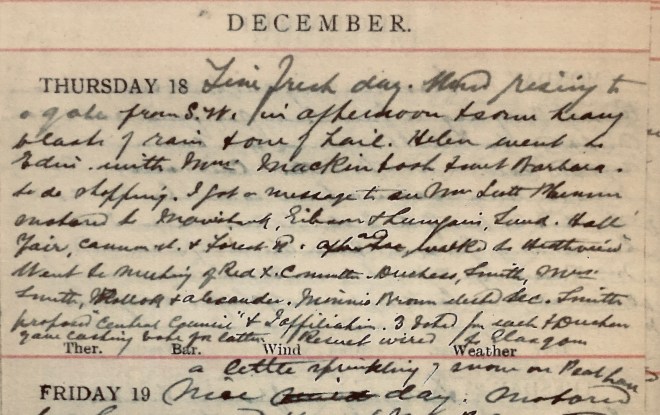 DECEMBER.
THURSDAY 18 Fine fresh day. Wind rising to
a gale from S.W. in afternoon & some heavy
blash of rain & one of hail. Helen went to
Edin. with Mrs Mackintosh & met Barbara.
to do shopping. I got a message to see Mrs Scott
motored to & Lund. Hall
Fair, Cannon st. & Forest R. walked to Heathview
Went to meeting of Red X. Committee. Duchess, Smith, Mrs
Smith, Pollok & Alexander. Minnie Brown elected Sec. Smith
proposed "Central Council" & I affiliation. 3 voted for each & Duchess
gave casting vote for latter. Result wired to Glasgow
Ther. Bar. Wind Weather
a little sprinkling of snow on
FRIDAY 19 Nice day. Motored